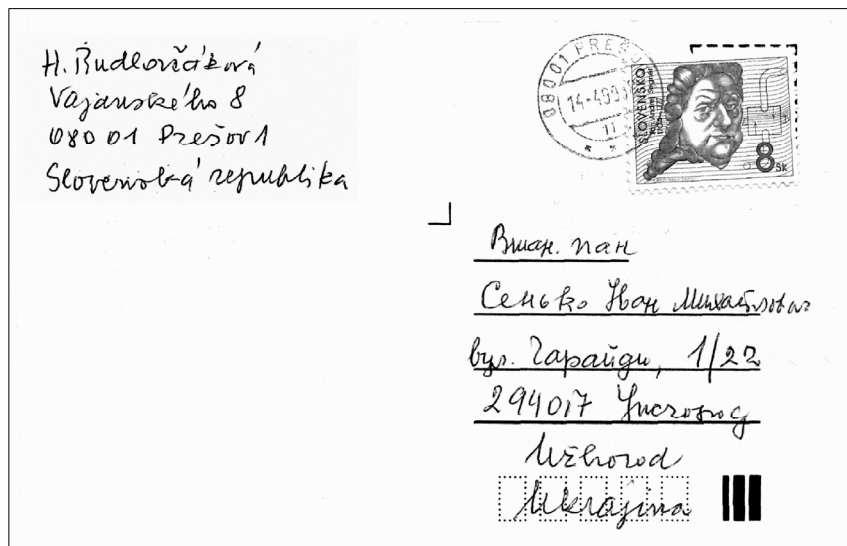 H. Rudlovčáková
Vajanského 8
080 01 Prešov 1
Slovenská republika
080 01 PREŠOV
14.-4.99
11
SLOVENSKO
8 Sk
Вшан. пан
Сенько Іван Михайлович
вул. Гарайди, 1/22
294017 Ужгород
Užhorod
Ukrajina